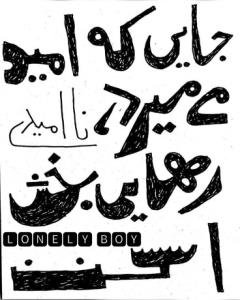 جایی که امید
می میرد، نا امیدی
رهایی بخش
LONELY BOY
است